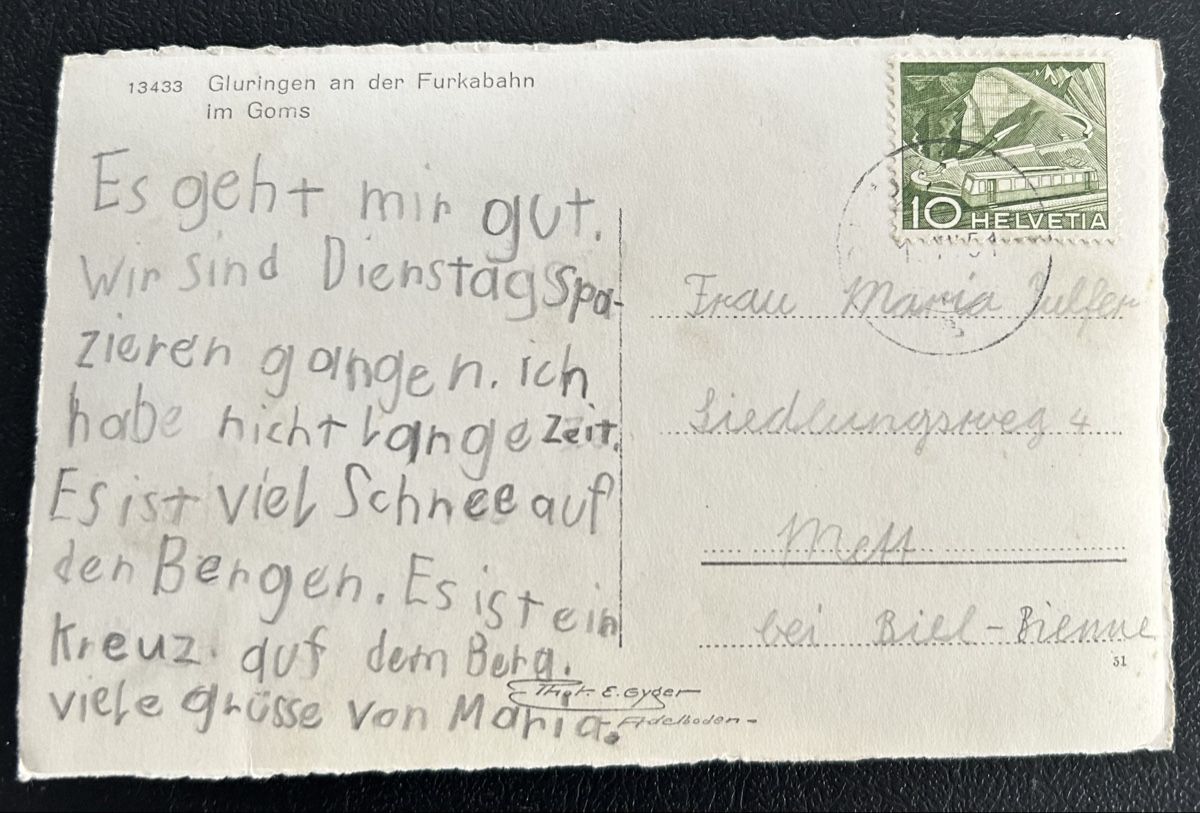 13433 Gluringen an der Furkabahn
im Goms
Es geht mir gut.
Wir sind Dienstag Spa-
zieren gangen. ich
habe nicht lange Zeit.
Es ist viel Schnee auf
den Bergen. Es ist ein
Kreuz. auf dem Berg.
viele grüsse von Maria.
Phot. E. Gyger
Adelboden -
10 HELVETIA
Frau Maria
Siedlungsweg 4
Mett
bei Biel-Bienne
51